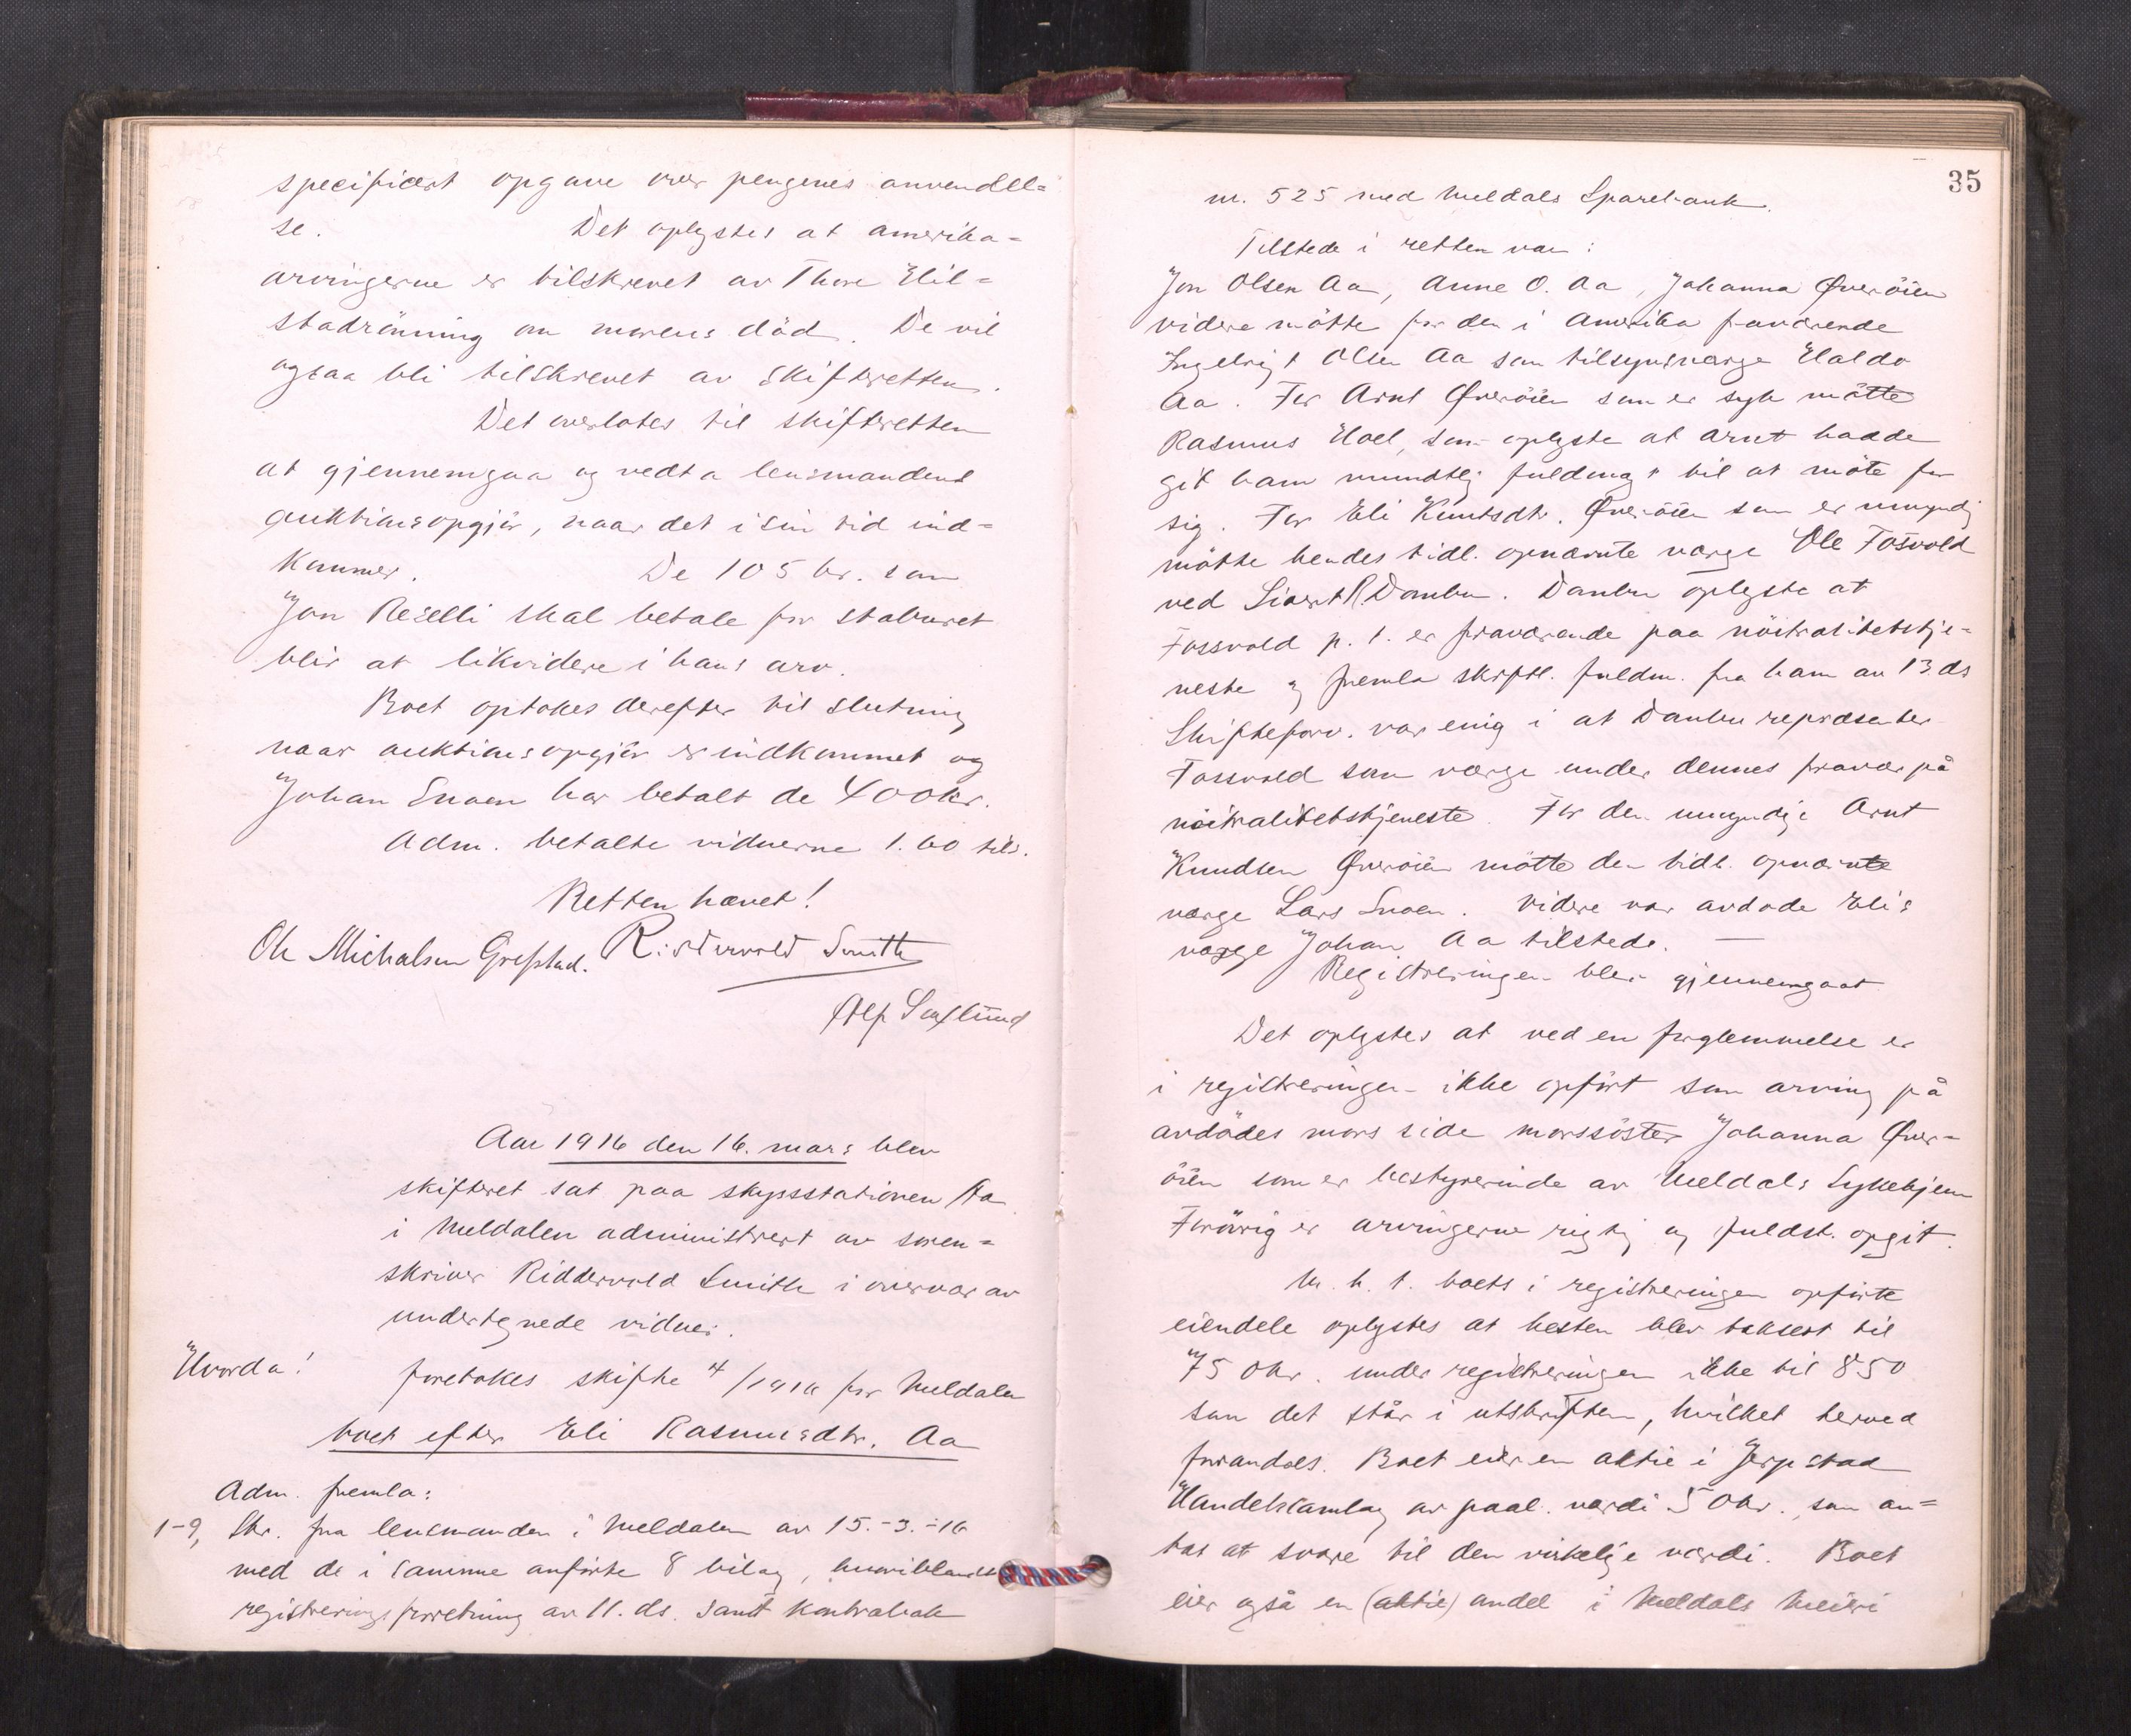 specificert opgave over pengenes anvendel=
se. Det oplystes at amerika=
arvingerne er tilskrevet av Thore Hil=
stadrönning om morens död. De vil
ogsaa bli tilskrevet av skifteretten.
Det overlotes til skifteretten
at gjennemgaa og vedta lensmandens
auktionsopgjör, naar det i sin tid ind=
kommer. De 105 kr. som
Jon Reselli skal betale for staburet
blir at likvidere i hans arv.
Boet optokes derefter til slutning
naar auktionsopgjör er indkommet og
Johan Snoen har betalt de 400 kr.
Adm. betalte vidnerne 1.60 tils.
Retten hævet!
Ole Michalsen Grefstad. Riddervold Smith
Alf
Aar 1916 den 16. mars blev
skifteret sat paa skysstationen Aa
i Meldalen administrert av soren=
skriver Riddervold Smith i overvær av
undertegnede vidner.
Hvorda!
foretokes skifte 4/1916 for Meldalen
boet efter Eli Rasmusdtr. Aa
Adm. fremla:
1-9, Skr. fra lensmanden i Meldalen av 15.-3.-16
med de i samme anförte 8 bilag, hvoriblandt
registreringsforretning av 11. ds. samt kontrabok
35
nr. 525 med Meldals Sparebank.
Tilstede i retten var:
Jon Olsen Aa, Anne O. Aa, Johanna Överöien
videre mötte for den i Amerika fraværende
Ingebrigt Olsen Aa som tilsynsværge Haldo
Aa. For Arnt Överöien som er syk mötte
Rasmus Hoel, som oplyste at Arnt hadde
git ham mundtlig fuldmagt til at möte for
sig. For Eli Knutsdtr. Överöien som er umyndig
mötte hendes tidl. opnævnte værge Ole Fosvold
ved Sivert R. Dombu. Dombu oplyste at
Fossvold p. t. er fraværende paa nöitralitetstje-
neste og fremla skriftl. fuldm. fra ham av 13. ds
Skifteforv. var enig i at Dombu repræsenter
Fossvold som værge under dennes fravær på
nöitralitetstjeneste. For den umyndige Arnt
Knudsen Överöien mötte den tidl. opnævnte
værge Lars Snoen. Videre var avdöde Elis
værge Johan Aa tilstede. —
Registreringen blev gjennemgaat
Det oplystes at ved en forglemmelse er
i registreringen ikke opfört som arving på
avdödes mors side morssöster Johanna Över-
öien som er bestyrerinde av Meldals Sykehjem
Forövrig er arvingerne rigtig og fuldst. opgit.
M. h. t. boets i registreringen opförte
eiendele oplystes at hesten blev taksert til
750 kr. under registreringen ikke til 850
som det står i utskriften, hvilket herved
forandres. Boet eier en aktie i Jerpstad
Handelslamlag av paal. værdi 50 kr., som an=
tas at svare til den virkelige værdi. Boet
eier også en (aktie) andel i Meldals Meieri